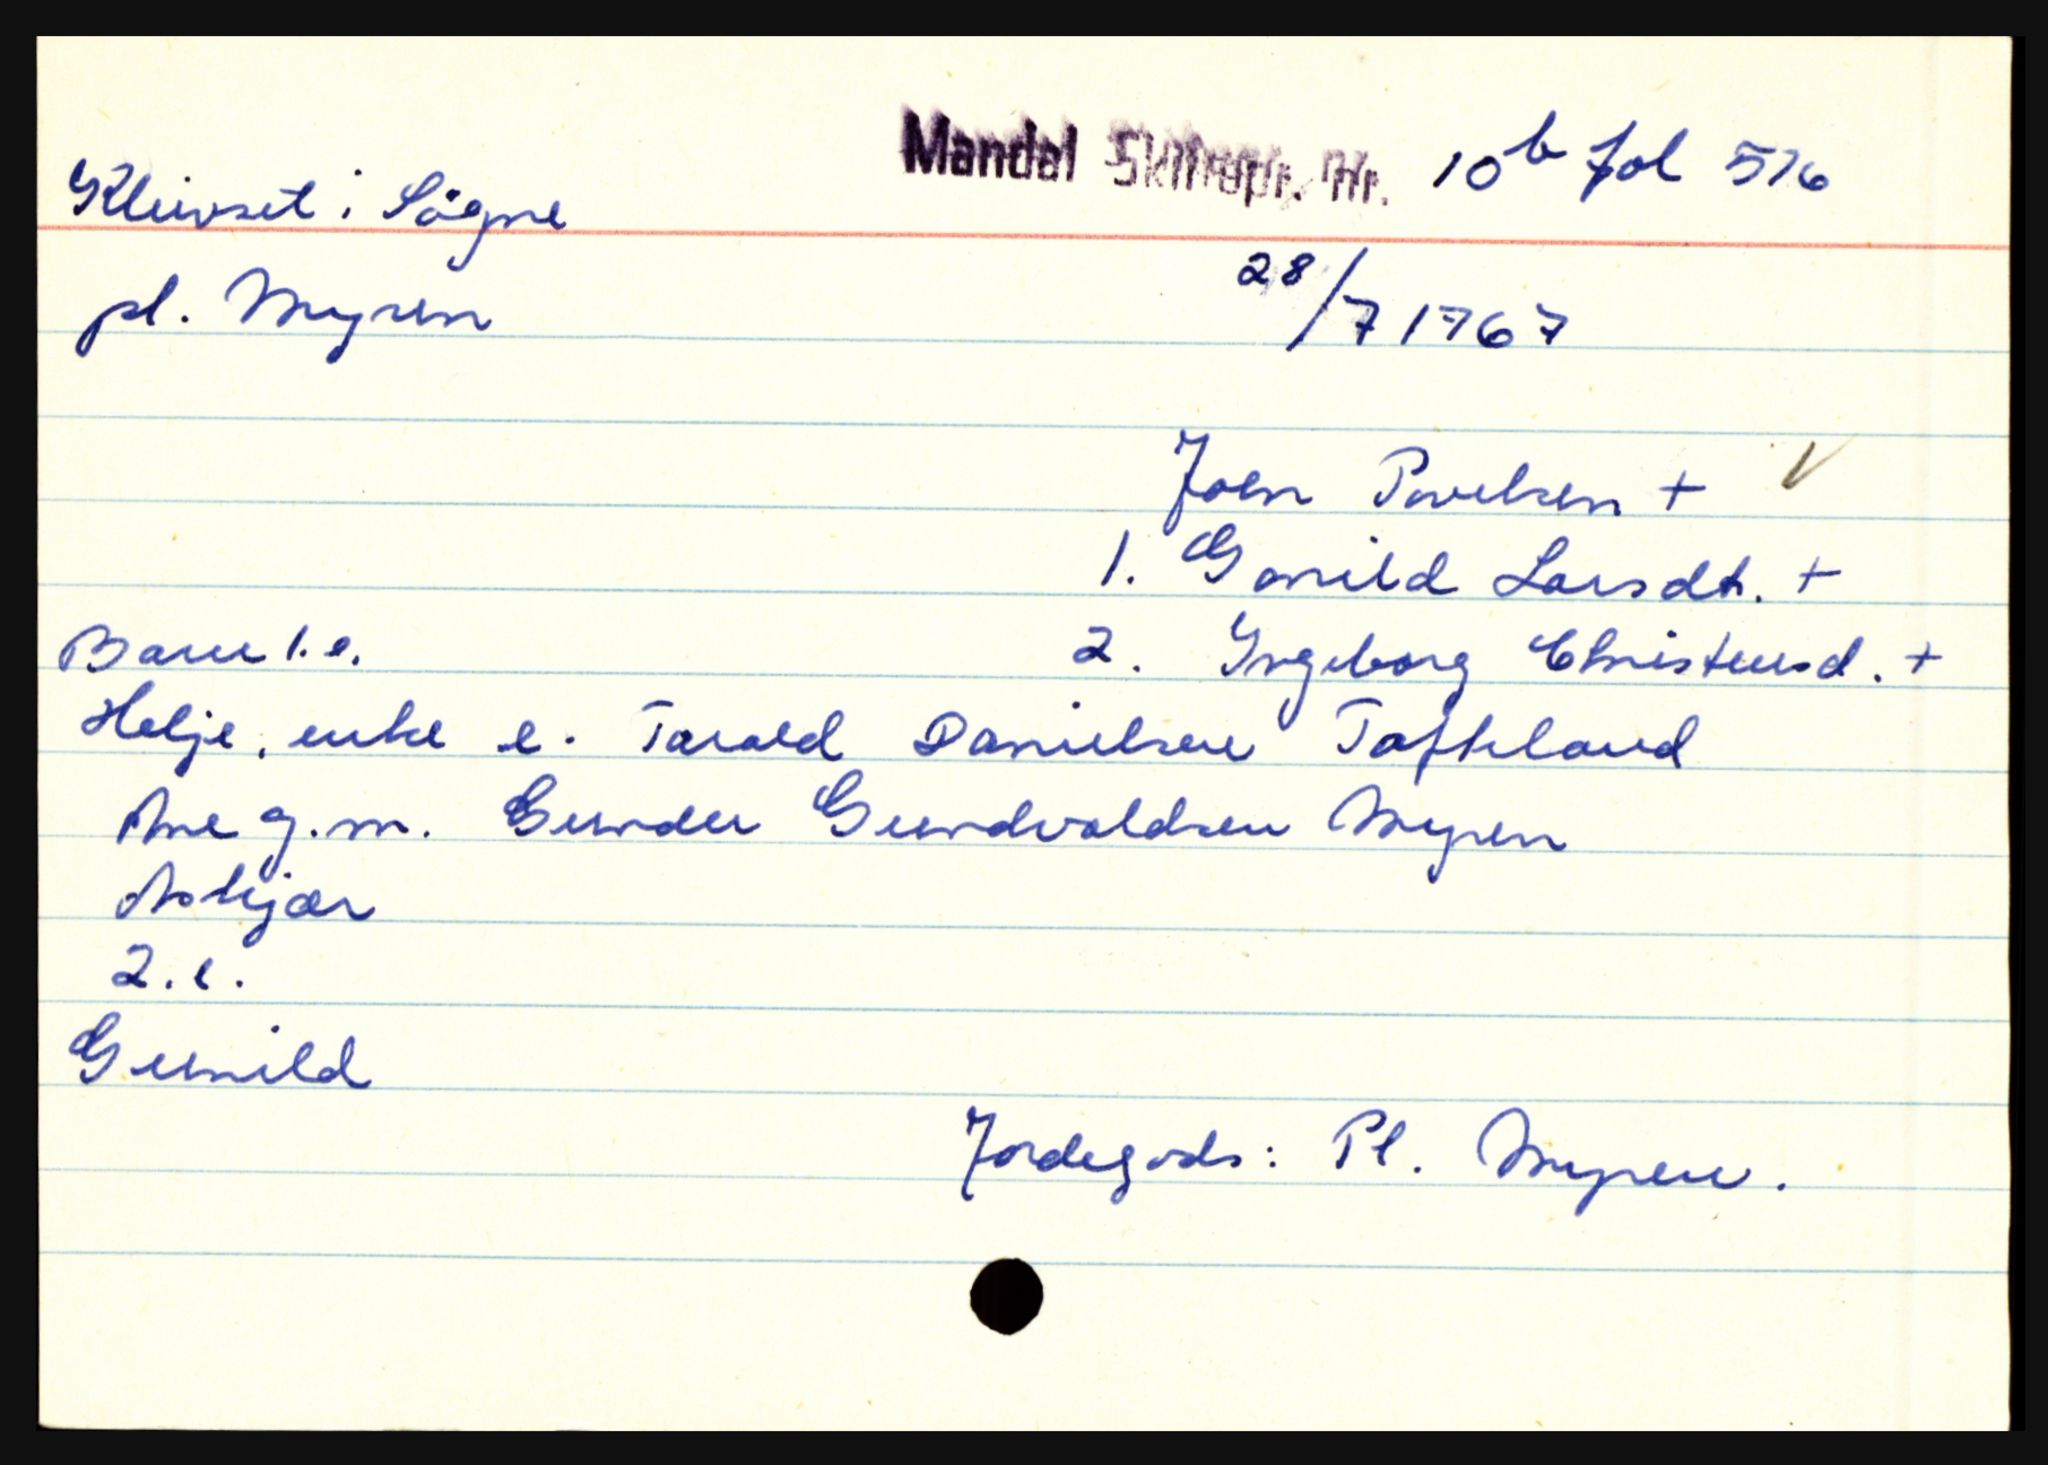 Mandal Skiftepr. nr. 10b fol 576
Kleivset i Sögne
28/7 1767
pl. Myren
Joen Povelsen +
1. Gonild Larsdt. +
Barn 1.e.
2. Ingeborg Christensd. +
Helje, enke e. Tarald Danielsen Tofteland
Ane g.m. Gunder Gundvaldsen Myren
Askjær
2.e.
Gunild
Jordegods: Pl. Myren.